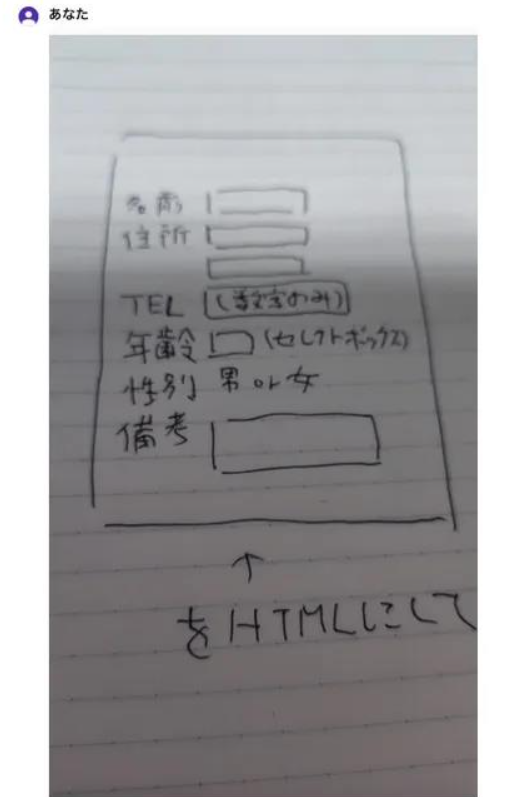 あなた
名前
住所
TEL (数字のみ)
年齢 (セレクトボックス)
性別 男 or 女
備考
↑
をHTMLにして